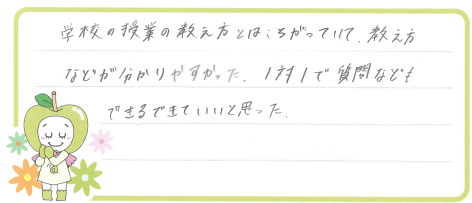 学校の授業の教え方とはちがっていて、教え方
などが分かりやすかった。1対1で質問なども
できるできていいと思った。